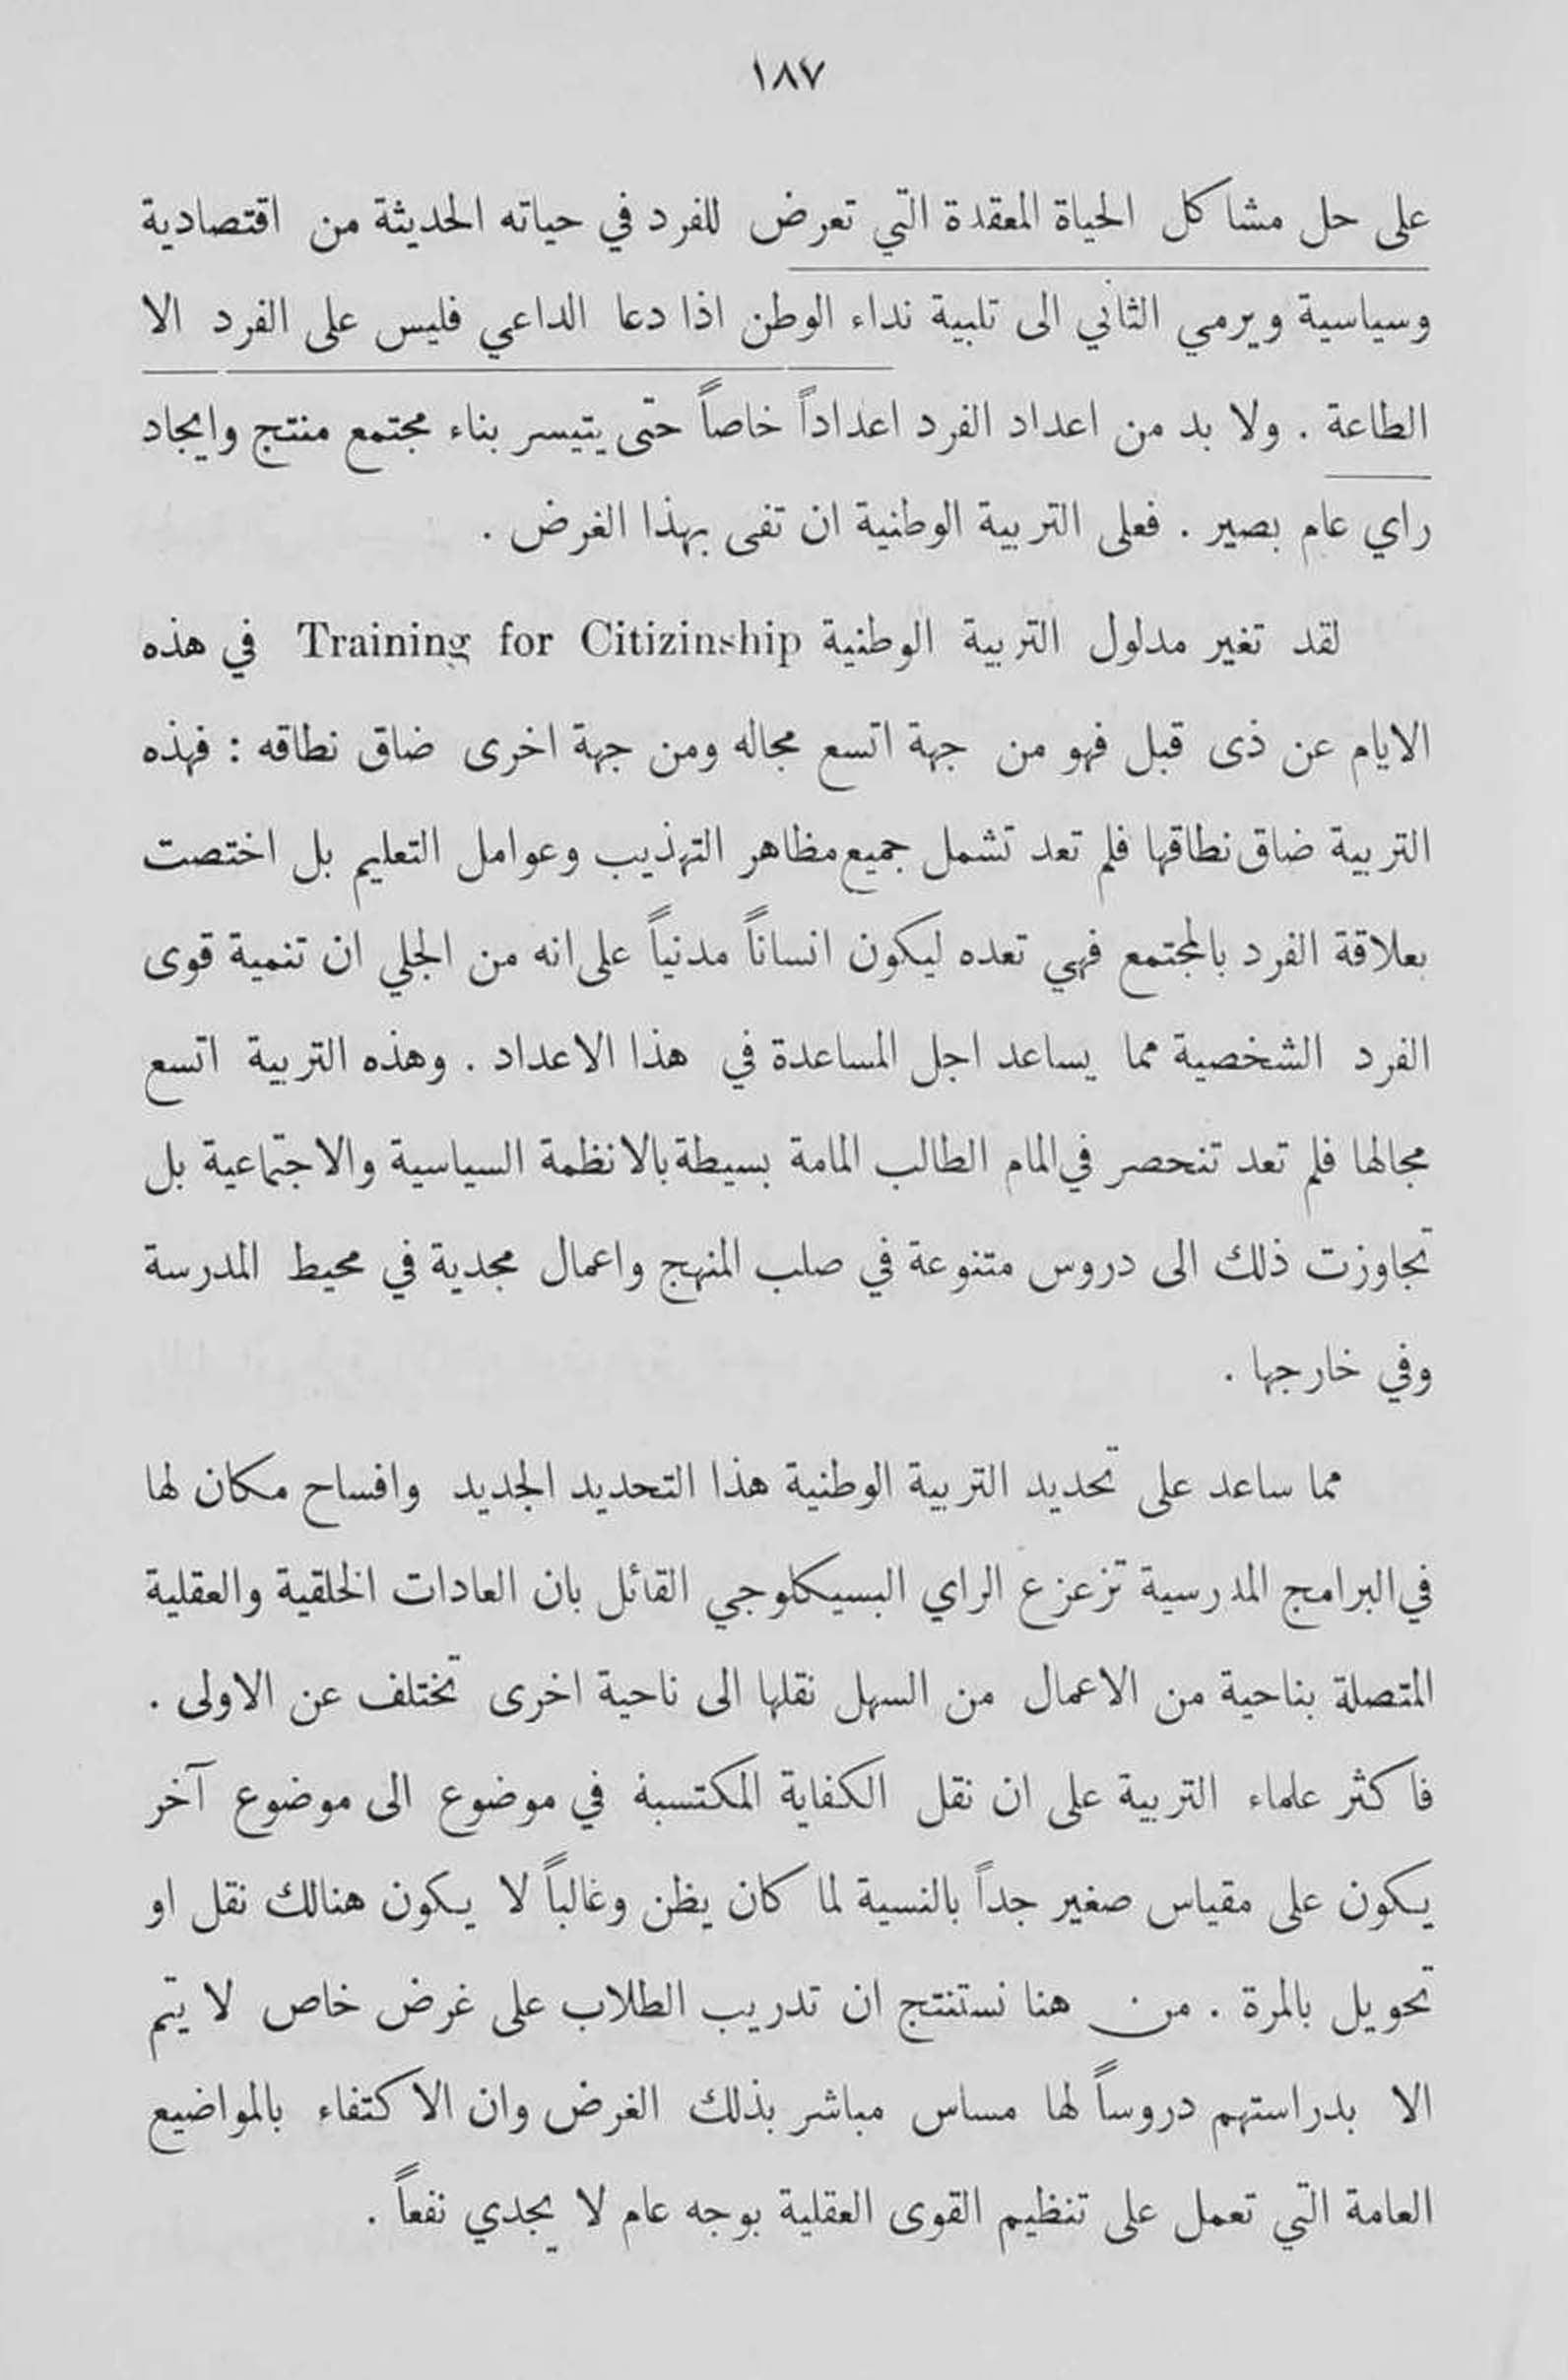 ١٨٧
على حل مشاكل الحياة المعقدة التي تعرض للفرد في حياته الحديثة من اقتصادية
وسياسية ويرمي الثاني الى تلبية نداء الوطن اذا دعا الداعي فليس على الفرد الا
الطاعة . ولا بد من اعداد الفرد اعداداً خاصاً حتى يتيسر بناء مجتمع منتج وايجاد
راي عام بصير . فعلى التربية الوطنية ان تفى بهذا الغرض .
لقد تغير مدلول التربية الوطنية Training for Citizinship في هذه
الايام عن ذى قبل فهو من جهة اتسع مجاله ومن جهة اخرى ضاق نطاقه : فهذه
التربية ضاق نطاقها فلم تعد تشمل جميع مظاهر التهذيب وعوامل التعليم بل اختصت
بعلاقة الفرد بالمجتمع فهي تعده ليكون انساناً مدنياً على انه من الجلي ان تنمية قوى
الفرد الشخصية مما يساعد اجل المساعدة في هذا الاعداد . وهذه التربية اتسع
مجالها فلم تعد تنحصر في المام الطالب المامة بسيطة بالانظمة السياسية والاجتماعية بل
تجاوزت ذلك الى دروس متنوعة في صلب المنهج واعمال مجدية في محيط المدرسة
وفي خارجها .
مما ساعد على تحديد التربية الوطنية هذا التحديد الجديد وافساح مكان لها
في البرامج المدرسية تزعزع الراي البسيكلوجي القائل بان العادات الخلقية والعقلية
المتصلة بناحية من الاعمال من السهل نقلها الى ناحية اخرى تختلف عن الاولى .
فاكثر علماء التربية على ان نقل الكفاية المكتسبة في موضوع الى موضوع آخر
يكون على مقياس صغير جداً بالنسية لما كان يظن وغالباً لا يكون هنالك نقل او
تحويل بالمرة . من هنا نستنتج ان تدريب الطلاب على غرض خاص لا يتم
الا بدراستهم دروساً لها مساس مباشر بذلك الغرض وان الاكتفاء بالمواضيع
العامة التي تعمل على تنظيم القوى العقلية بوجه عام لا يجدي نفعاً .